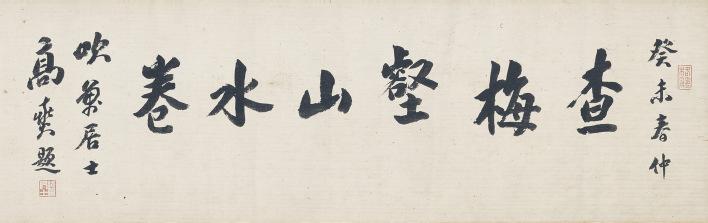 癸未春仲
查梅壑山水卷
吹萬居士
高燮題